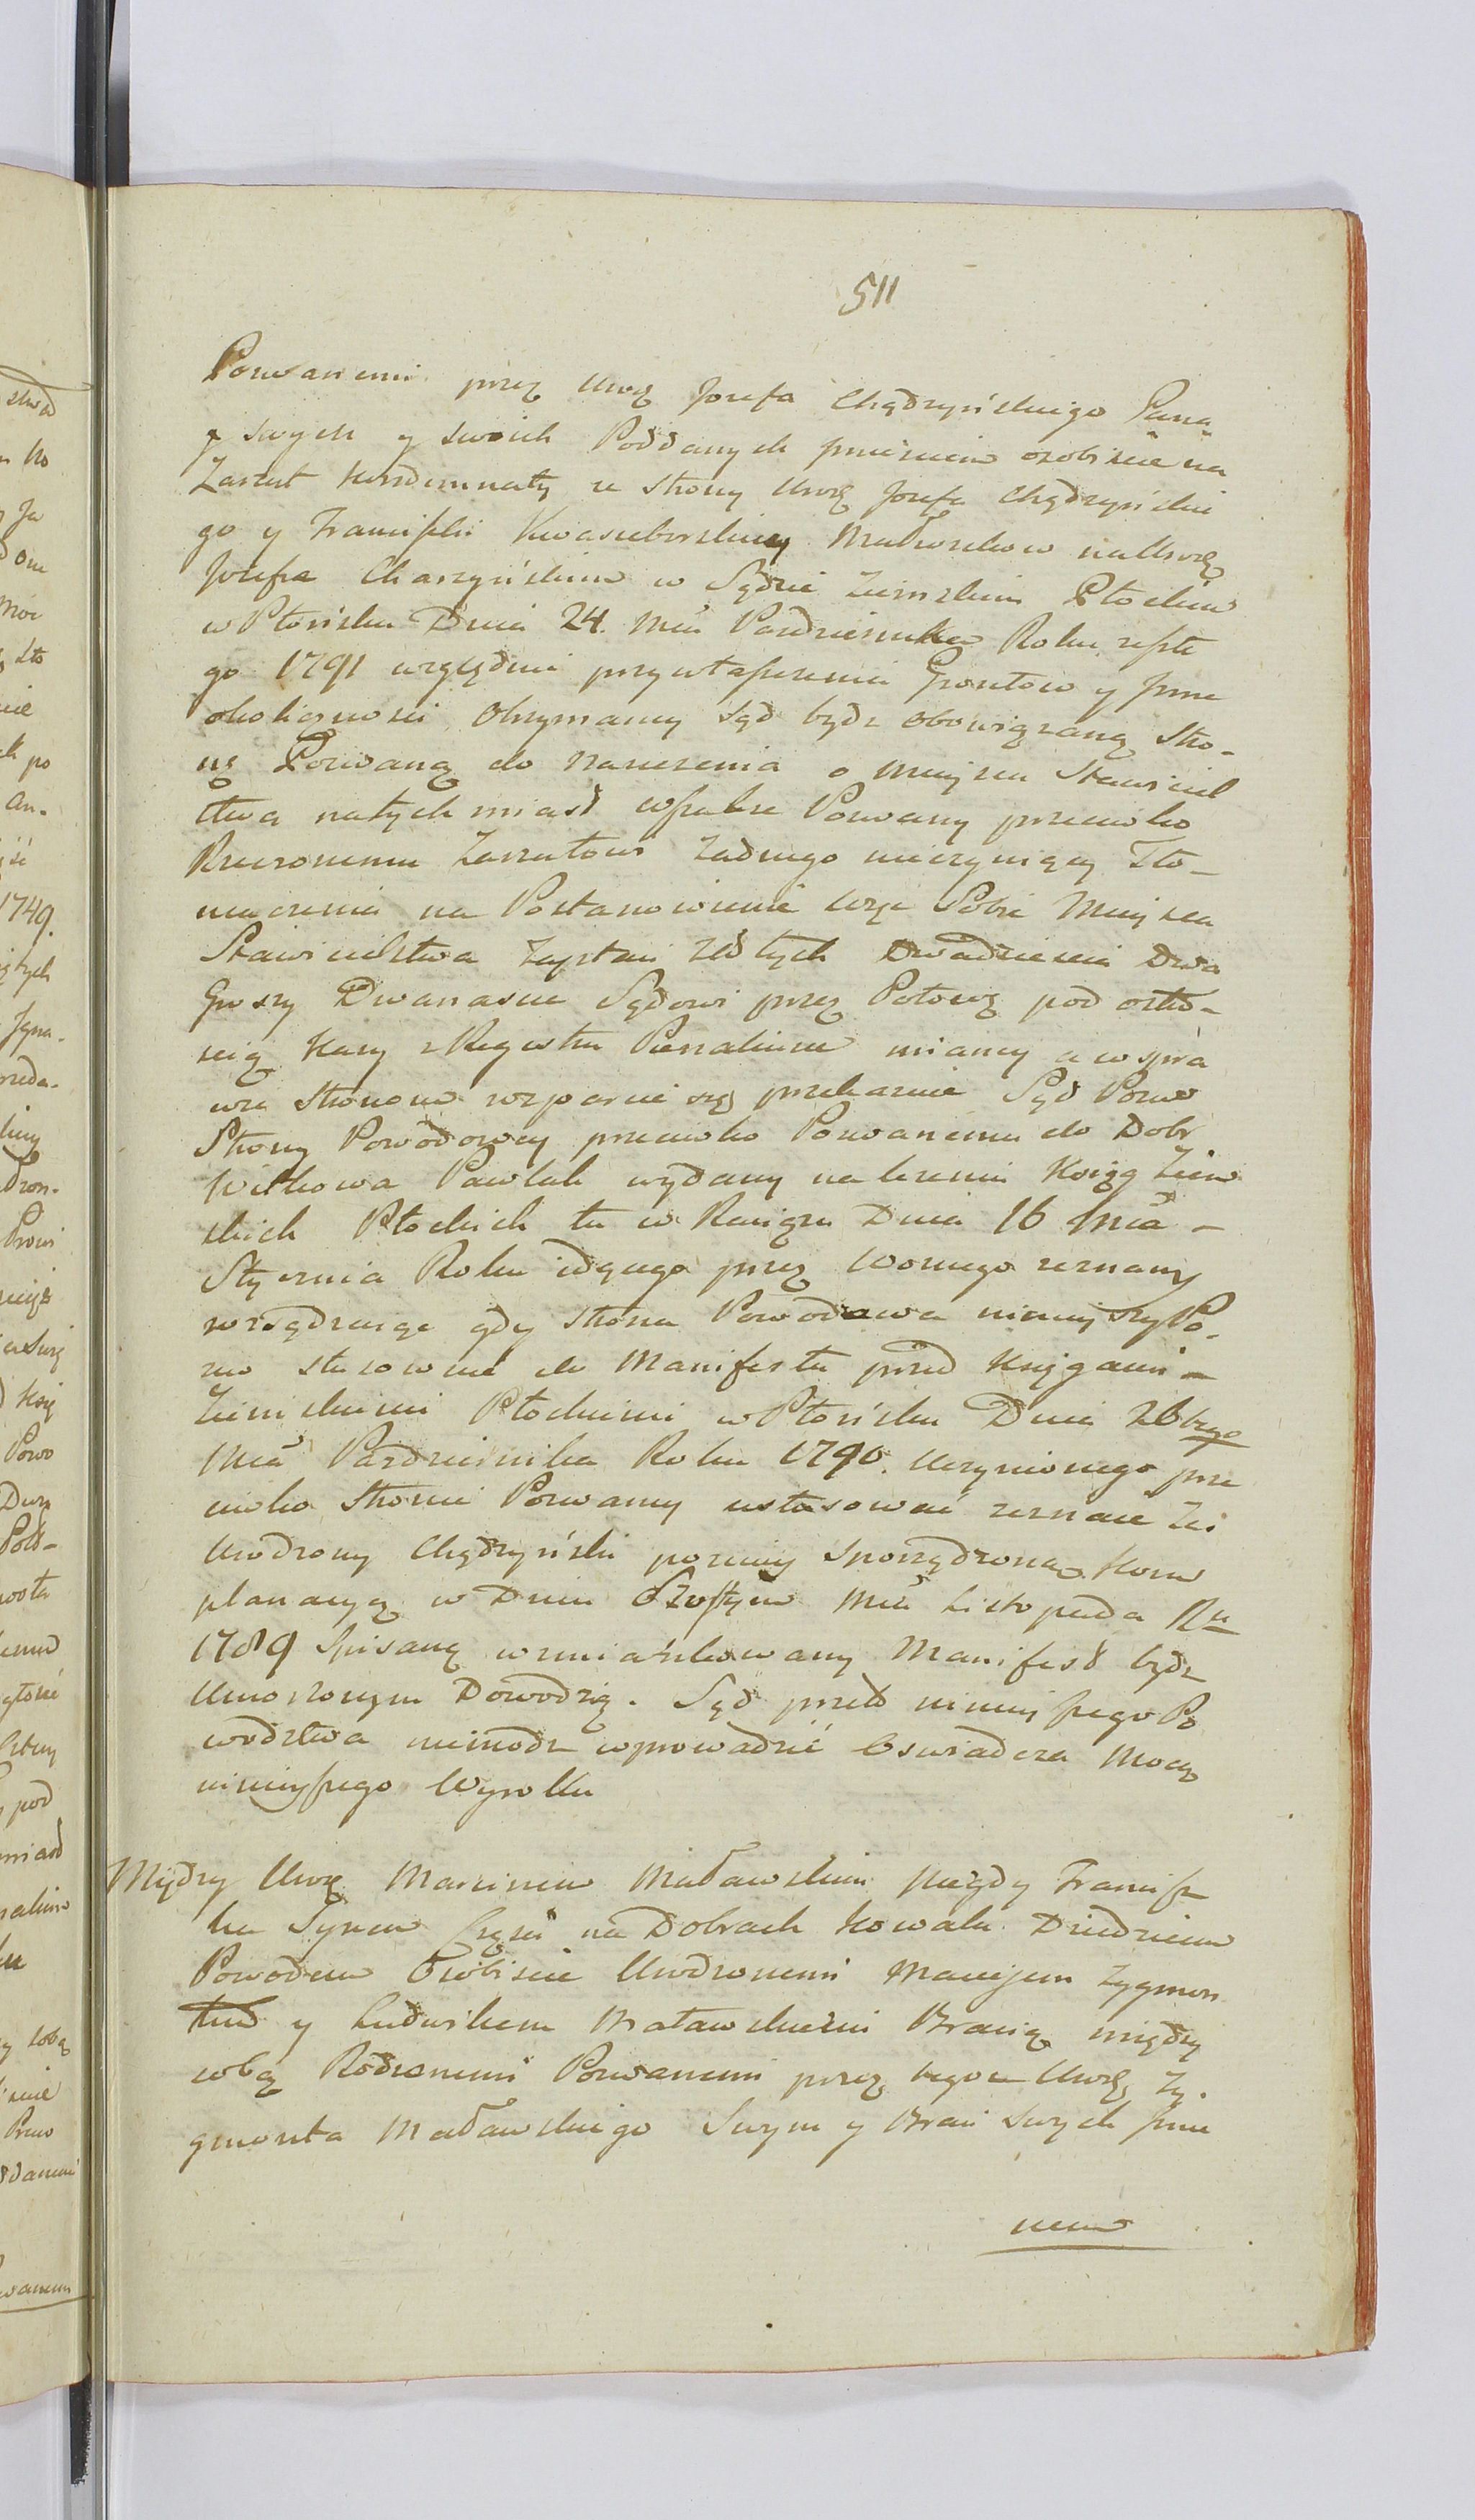 511
Pozwanemi przez Urodz Jozefa Chądzyńskiego Pana
y swych y swoich Poddanych Jmieniem osobiscie na
Zarzut kondemnaty ze strony Urodz Jozefa Chądzyńskie
go y Franciszki Małzonkow na Urodz
Jozefie Charzyńskim w Sądzie Ziemskim Płockim
w Płońsku Dnia 24. Mca Pazdziernika Roku zeszłe
go 1791 względnie przywłaszczenia Grontow y Jnne
okoliczności Otrzymaney Sąd bydź obowiązaną Stro-
nę Pozwaną do naniesenia o mieysce Stawiciel
stwa natychmiast Pozwany przeciwko
Rzeczonemu Zarzutowi Zadnego nieczyniący Tło-
maczenia na Postanowienie wrze Sobie Mieysca
Stawicielstwa Zapłaci Złotych Dwadziescia Dwa
Groszy Dwanascie Sądowi przez Połowę pod ostro-
scią Kary z Regestru Poenalium mianey a w spra
wie Stronom rozparcie się przekazuie Sąd Pozew
Strony Powodowey przeciwko Pozwanemu do Dobr
Witkowa Pawlak wydany na brzemie Xiąg Ziem
skich Płockich tu w Raciążu Dnia 16 Mca -
Stycznia Roku idącego przez Woznego zeznany
rozsądzaiąc gdy strona Powodowa ninieyszy Po-
zew stosownie do Manifestu przed Księgami -
Ziemskiemi Płockiemi w Płońsku Dnia 26tego
Mca Pazdziernika Roku 1790. Uczynionego prze
ciwko Stronie Pozwaney ustosować zeznaie Ze
Urodzony Chądzyński pozniey sporządzoną Kom
planacyą w Dniu Szostym Mca Listopada Ru
1789 Spisaną wzmiankowany Manifest bydź
Umorzonym Dowodzą. Sąd przeto ninieyszego Po
wodztwa niemodz wprowadzić Oswiadcza Mocą
ninieyszego Wyroku
Między Urodz Marcinem Maławskim niegdy Francisz
ka Synem Części na Dobrach Kowalu Dziedzicem
Powodem Osobiscie Urodzonemi Maciejem Zygmon
tem y Ludwikem Maławskiemi Bracią między
sobą Rodzonemi Pozwanemi przez tegoz Urodz Zy-
gmonta Maławskiego Swym y Braci Swych Jmie
niem